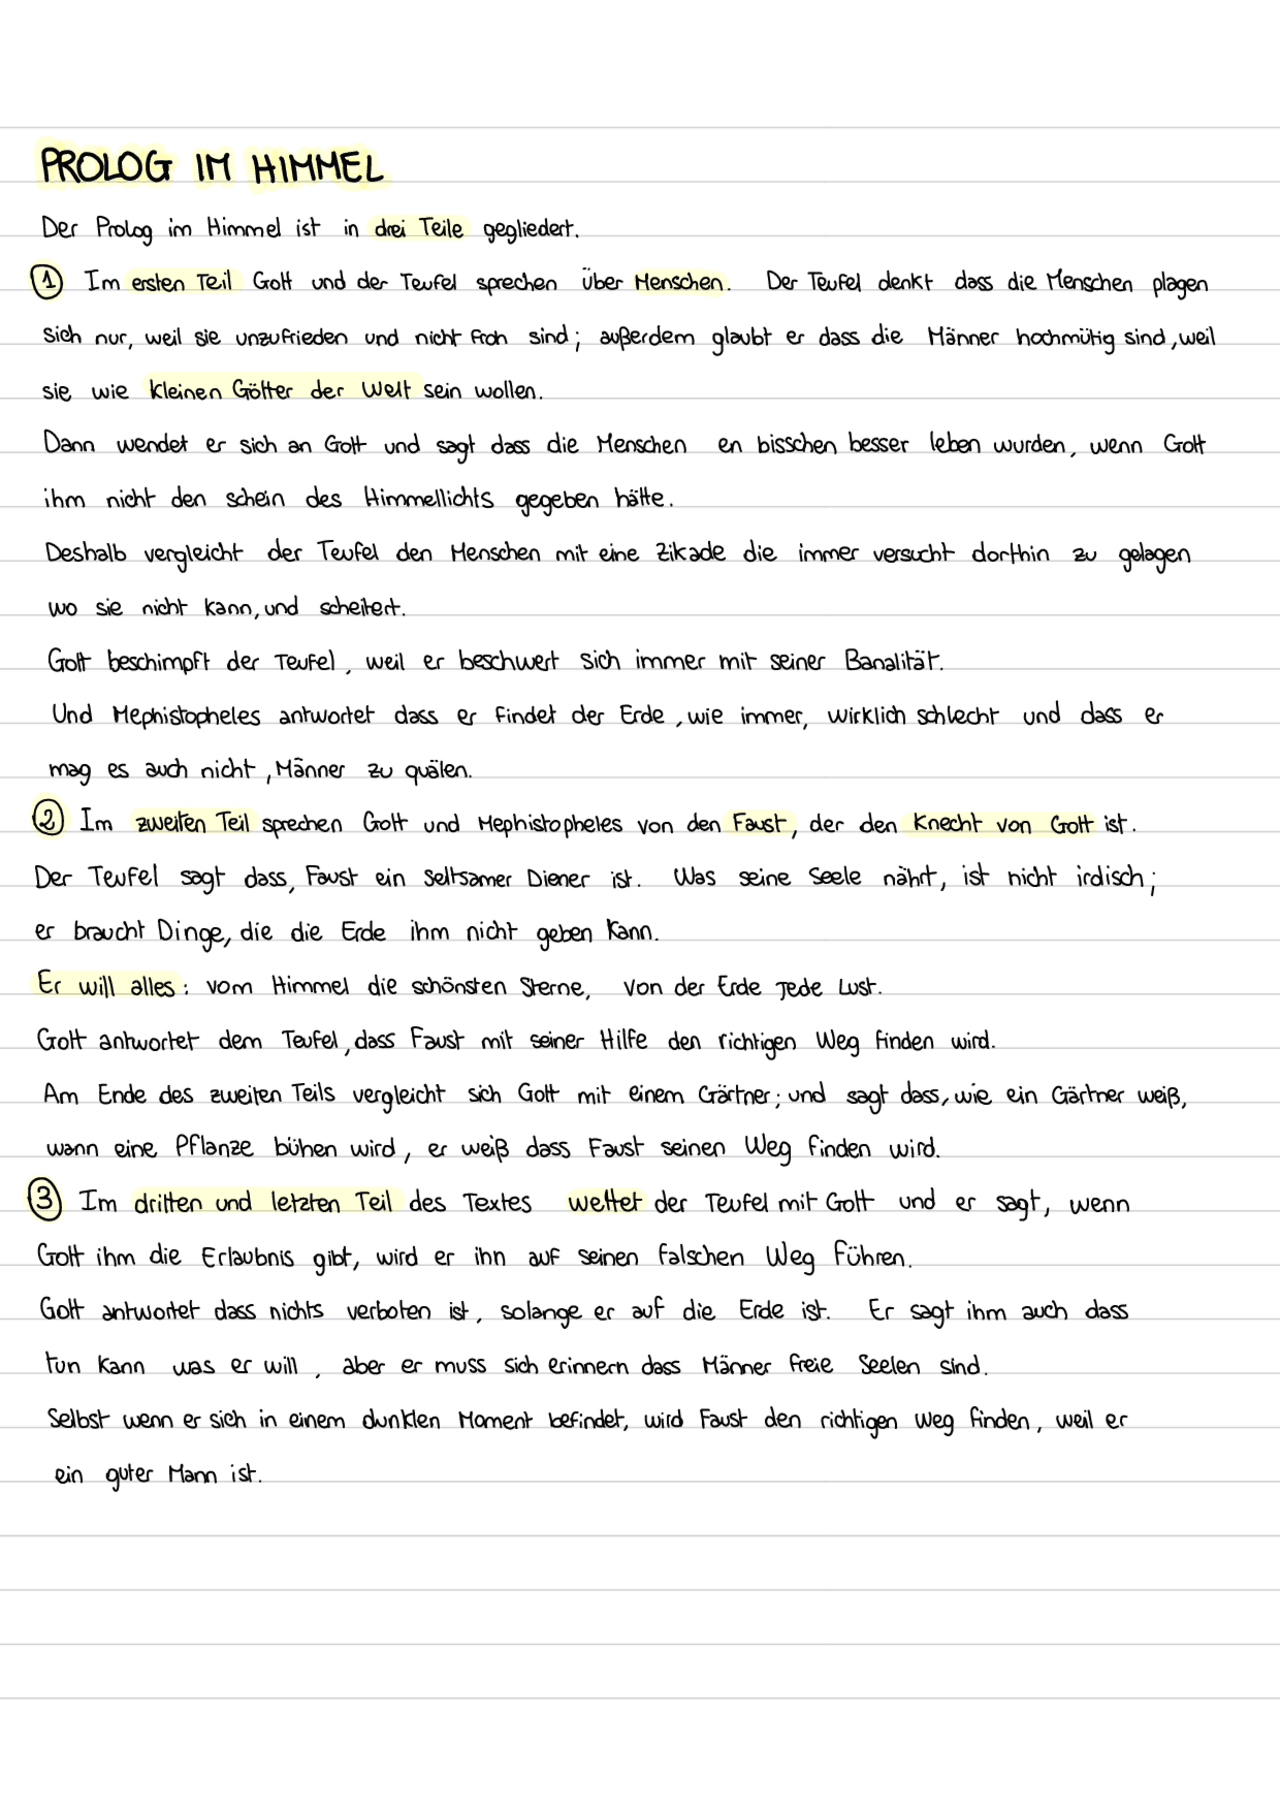 PROLOG IM HIMMEL
Der Prolog im Himmel ist in drei Teile gegliedert.
1 Im ersten Teil Gott und der Teufel sprechen über Menschen. Der Teufel denkt dass die Menschen plagen
sich nur, weil sie unzufrieden und nicht froh sind; außerdem glaubt er dass die Männer hochmütig sind, weil
sie wie kleinen Götter der Welt sein wollen.
Dann wendet er sich an Gott und sagt dass die Menschen en bisschen besser leben wurden, wenn Gott
ihm nicht den schein des Himmellichts gegeben hätte.
Deshalb vergleicht der Teufel den Menschen mit eine Zikade die immer versucht dorthin zu gelagen
wo sie nicht kann, und scheitert.
Gott beschimpft der Teufel, weil er beschwert sich immer mit seiner Banalität.
Und Mephistopheles antwortet dass er findet der Erde, wie immer, wirklich schlecht und dass er
mag es auch nicht, Männer zu quälen.
2 Im zweiten Teil sprechen Gott und Mephistopheles von den Faust, der den Knecht von Gott ist.
Der Teufel sagt dass, Faust ein seltsamer Diener ist. Was seine Seele nährt, ist nicht irdisch;
er braucht Dinge, die die Erde ihm nicht geben kann.
Er will alles: vom Himmel die schönsten Sterne, von der Erde jede Lust.
Gott antwortet dem Teufel, dass Faust mit seiner Hilfe den richtigen Weg finden wird.
Am Ende des zweiten Teils vergleicht sich Gott mit einem Gärtner; und sagt dass, wie ein Gärtner weiß,
wann eine Pflanze bühen wird, er weiß dass Faust seinen Weg finden wird.
3 Im dritten und letzten Teil des Textes wettet der Teufel mit Gott und er sagt, wenn
Gott ihm die Erlaubnis gibt, wird er ihn auf seinen falschen Weg führen.
Gott antwortet dass nichts verboten ist, solange er auf die Erde ist. Er sagt ihm auch dass
tun kann was er will, aber er muss sich erinnern dass Männer freie Seelen sind.
Selbst wenn er sich in einem dunklen Moment befindet, wird Faust den richtigen Weg finden, weil er
ein guter Mann ist.